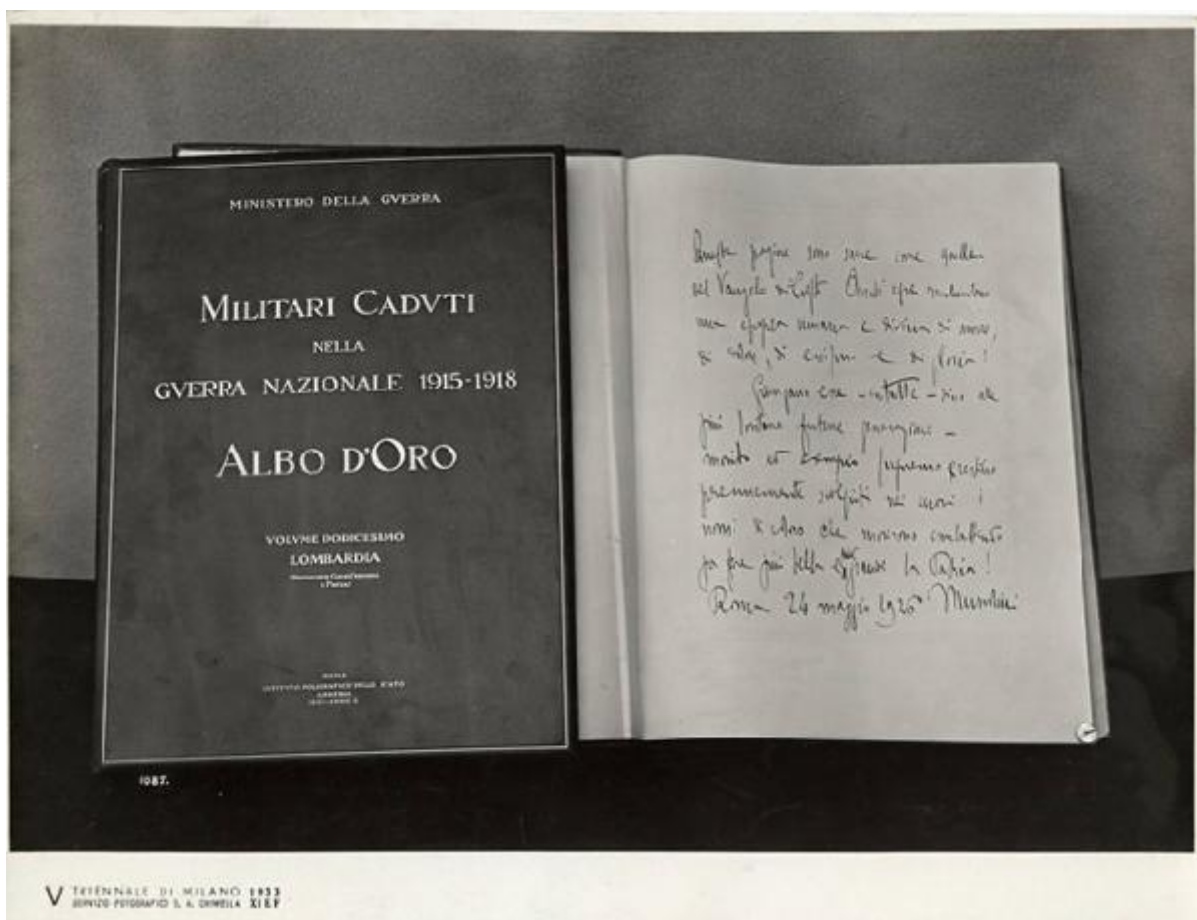 MINISTERO DELLA GVERRA
MILITARI CADVTI
NELLA
GVERRA NAZIONALE 1915-1918
ALBO D'ORO
VOLVME DODICESIMO
LOMBARDIA
ROMA
ISTITVTO POLIGRAFICO DELLO STATO
LIBRERIA
Queste pagine sono sacre come quelle
del Vangelo di
una epopea umana e divina di
di di e di gloria!
Giungano esse - intatte - sino alle
più lontane future generazioni -
monito ed esempio supremo e restino
perennemente scolpiti nei cuori i
nomi di coloro che morirono combattendo
per fare più bella e grande la Patria!
Roma 24 maggio 1926 Mussolini
1087.
V TRIENNALE DI MILANO 1933
SERVIZIO FOTOGRAFICO S. A. CRIMELLA XI E F